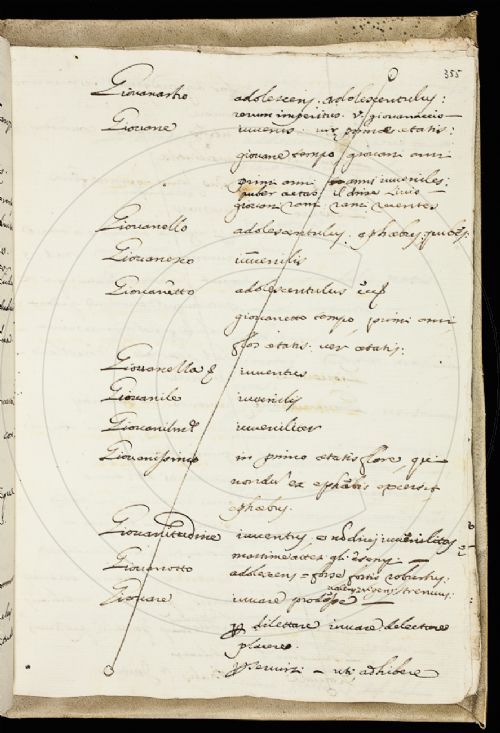 355
Giovanastro adolescens. adolescentulus:
rerum imperitus. v. giovanaccio
Giovane iuvenis. vir primæ ætatis:
giovane tempo, giovani anni
primi anni anni iuveniles:
puber aetas, il disse Livio
giovani rami rami iuventes
Giovanello adolescentulus. ephæbus, pubes:
Giovanesco iuvenilis
Giovanetto adolescentulus
giovanetto tempo, primi anni
flos ætatis. ver ætatis:
Giovanella iuventus
Giovanile iuvenilis
Giovanilmte iuveniliter
Giovanissimo in primo ætatis flore, qui
nondum ex ephæbis excessit
ephæbus.
Giovanitudine iuventus, iuvenilitas
Giovanotto adolescens forse fortis robustus:
strenuus:
Giovare iuvare prodesse
p dilettare iuvare delectare
placere.
p servirsi uti, adhibere